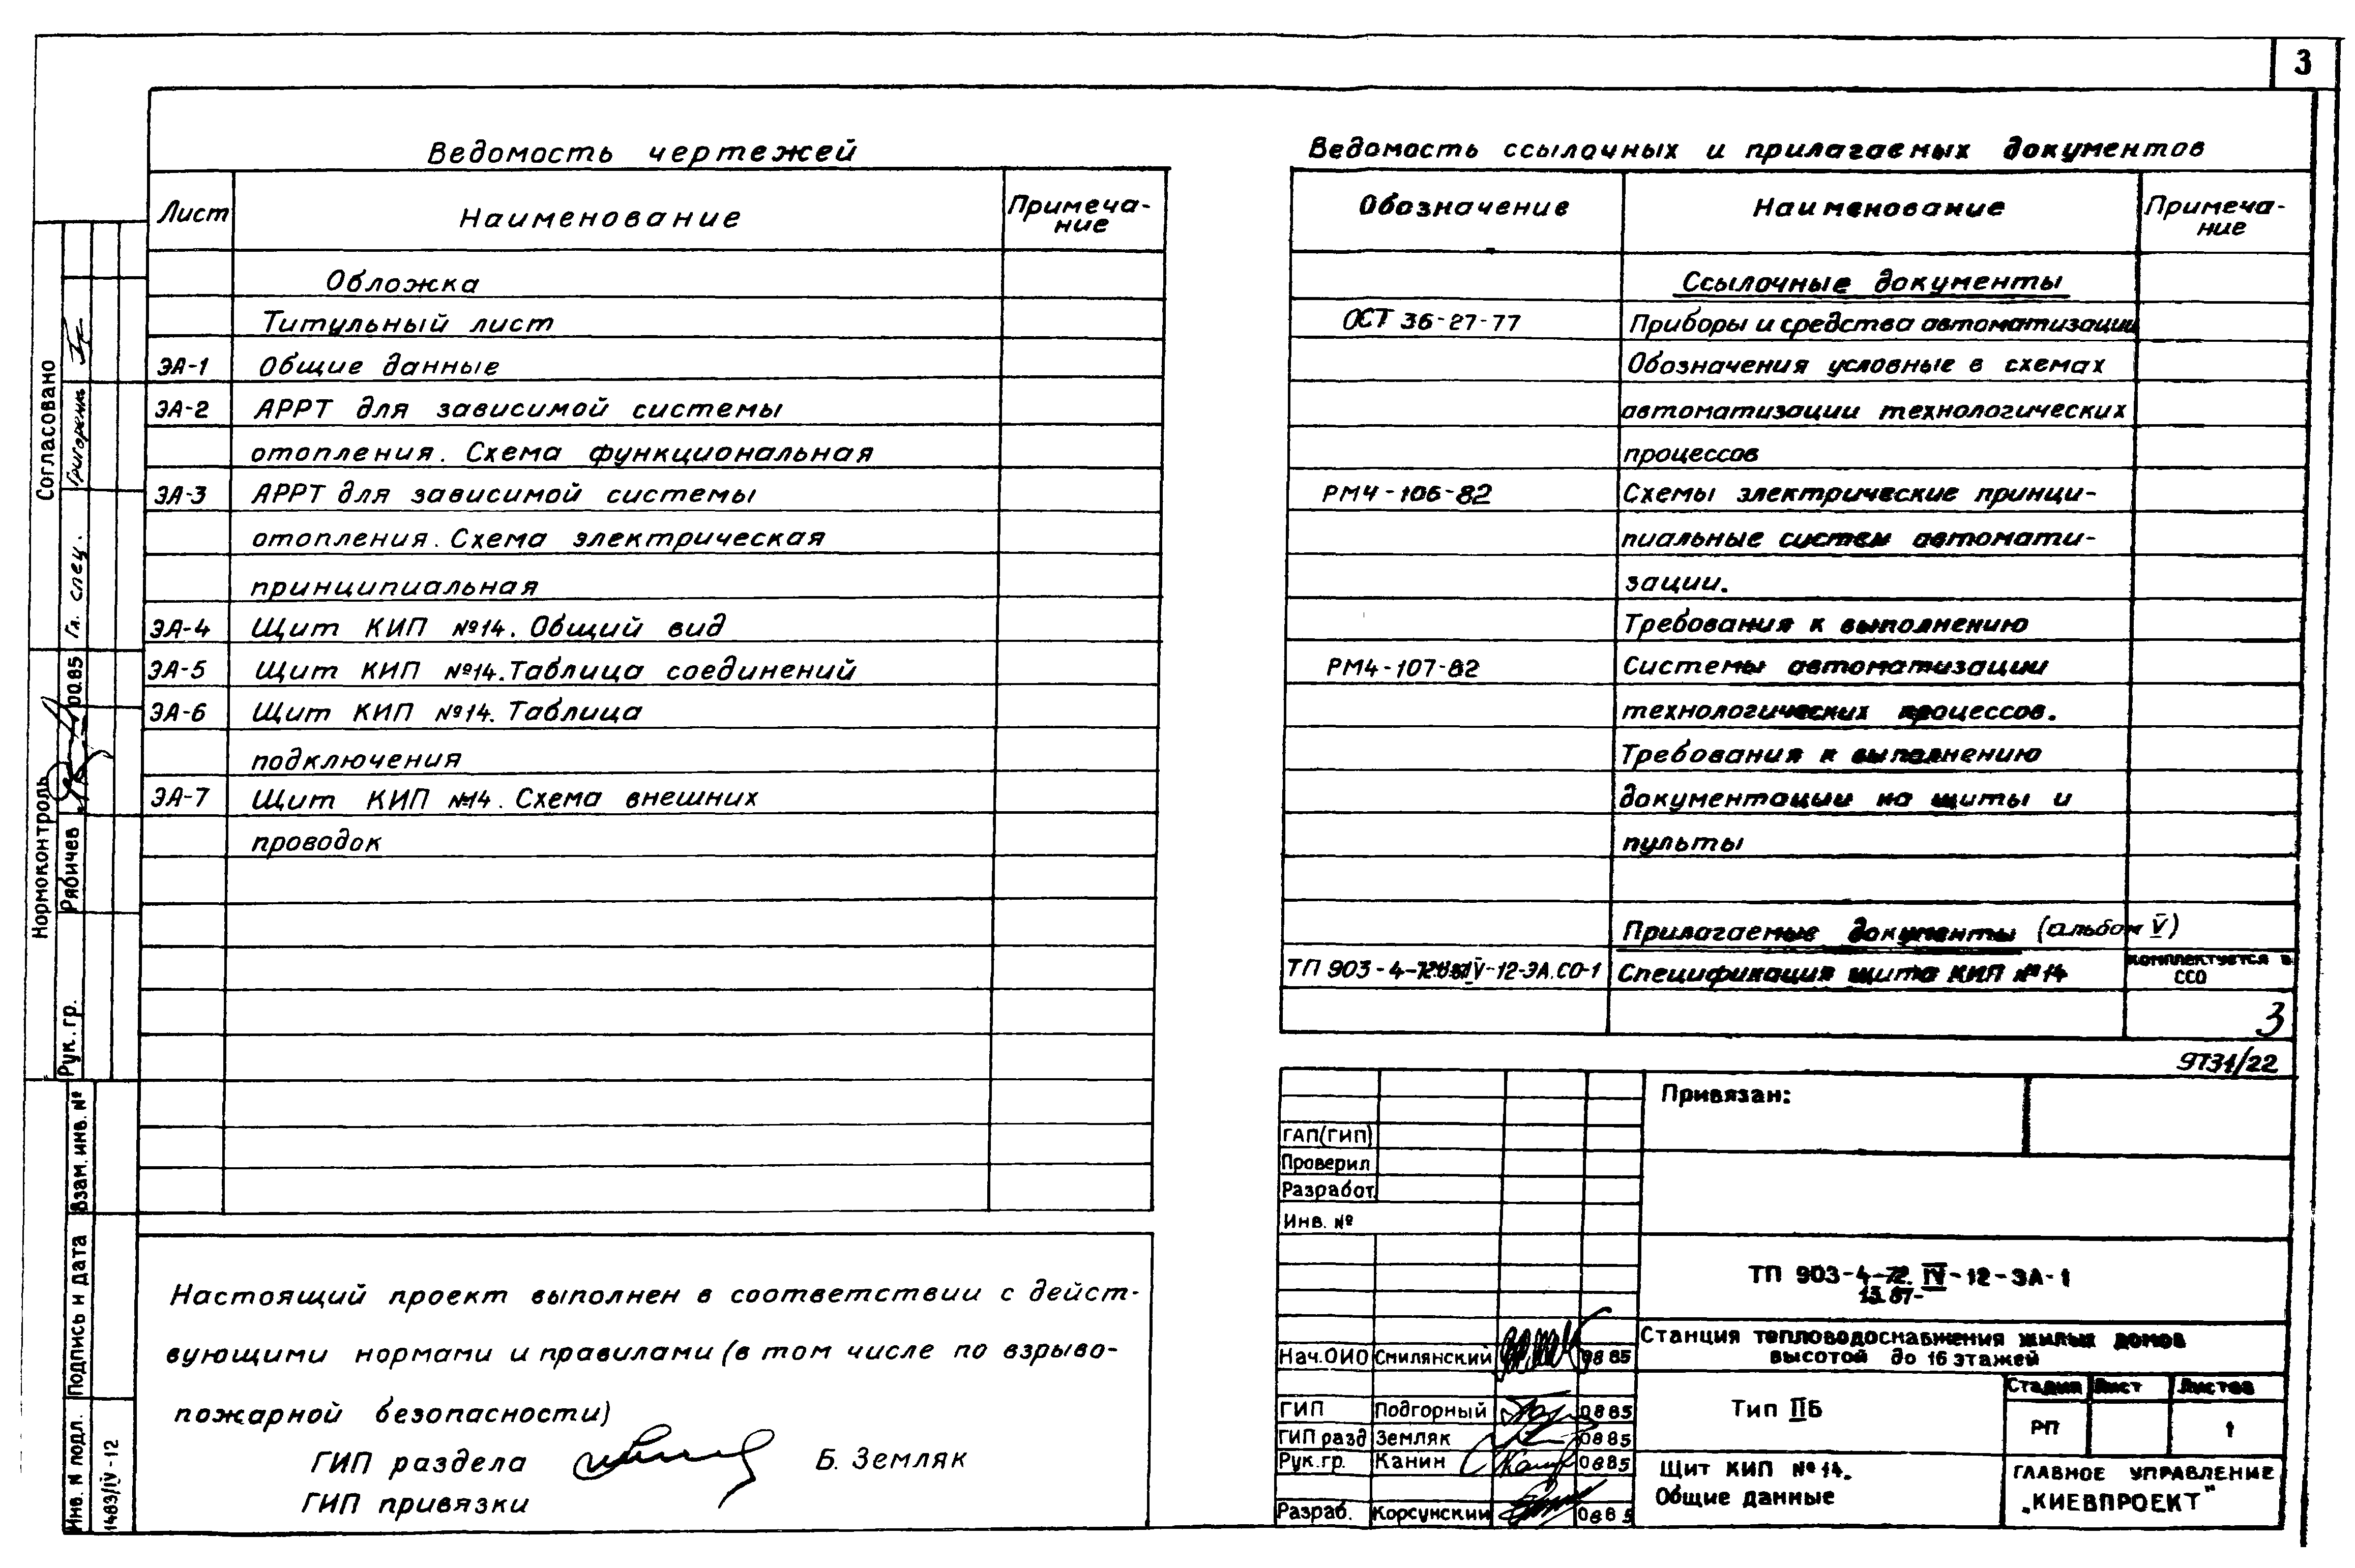 3
Ведомость чертежей
Лист Наименование Примеча-
ние
Обложка
Титульный лист
ЭА-1 Общие данные
ЭА-2 АРРТ для зависимой системы
отопления. Схема функциональная
ЭА-3 АРРТ для зависимой системы
отопления. Схема электрическая
принципиальная
ЭА-4 Щит КИП №14. Общий вид
ЭА-5 Щит КИП №14. Таблица соединений
ЭА-6 Щит КИП №14. Таблица
подключения
ЭА-7 Щит КИП №14. Схема внешних
проводок
Настоящий проект выполнен в соответствии с дейст-
вующими нормами и правилами (в том числе по взрыво-
пожарной безопасности)
ГИП раздела Б. Земляк
ГИП привязки
Ведомость ссылочных и прилагаемых документов
Обозначение Наименование Примеча-
ние
Ссылочные документы
ОСТ 36-27-77 Приборы и средства автоматизации
Обозначения условные в схемах
автоматизации технологических
процессов
РМ4-106-82 Схемы электрические принци-
пиальные систем автомати-
зации.
Требования к выполнению
РМ4-107-82 Системы автоматизации
технологических процессов.
Требования к выполнению
документации на щиты и
пульты
Прилагаемые документы (альбом V)
ТП 903-4- IV-12-ЭА.СО-1 Спецификация щита КИП №14 комплектуется в
ССО
3
9731/22
Привязан:
ГАП(ГИП)
Проверил
Разработ.
Инв. №
ТП 903-4-72. IV-12-ЭА-1
13.87-
Станция тепловодоснабжения жилых домов
высотой до 16 этажей
Нач.ОИО Смилянский 0885
ГИП Подгорный 0885
ГИП разд Земляк 0885
Рук.гр. Канин 0885
Разраб. Корсунский 0885
Тип IIБ
Стадия Лист Листов
РП 1
Щит КИП №14.
Общие данные
ГЛАВНОЕ УПРАВЛЕНИЕ
„КИЕВПРОЕКТ"
Согласовано
Гл. спец. Григоренко
Нормоконтроль
Рук. гр. Рябичев 00.85
Взам. инв. №
Подпись и дата
Инв. N подл.
1483/IV-12